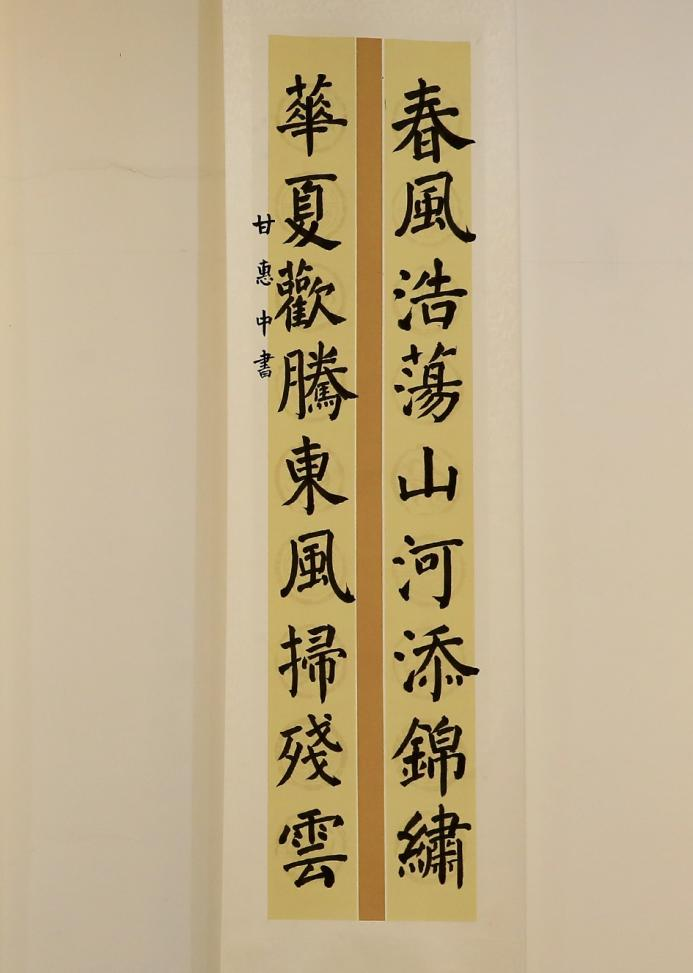 春風浩蕩山河添錦繡
華夏歡騰東風掃殘雲
甘惠中書